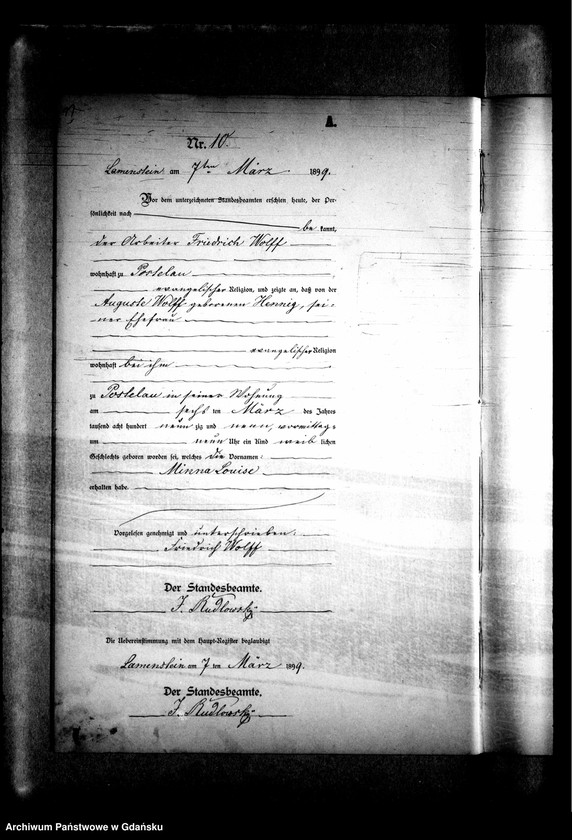 A.
Nr. 10.
Lamenstein am 7ten März 1899.
Vor dem unterzeichneten Standesbeamten erschien heute, der Per-
sönlichkeit nach
bekannt,
der Arbeiter Friedrich Wolff
wohnhaft zu Postelau
evangelischer Religion, und zeigte an, daß von der
Auguste Wolff geborenen Hennig, sei-
ner Ehefrau
evangelischer Religion
wohnhaft bei ihm
zu Postelau in seiner Wohnung
am sechsten März des Jahres
tausend acht hundert neunzig und neun, vormittags
um neun Uhr ein Kind weiblichen
Geschlechts geboren worden sei, welches die Vornamen:
Minna Louise
erhalten habe.
Vorgelesen genehmigt und unterschrieben.
Friedrich Wolff
Der Standesbeamte.
J. Rudlowsky
Die Uebereinstimmung mit dem Haupt-Register beglaubigt
Lamenstein am 7ten März 1899.
Der Standesbeamte.
J. Rudlowsky
Archiwum Państwowe w Gdańsku